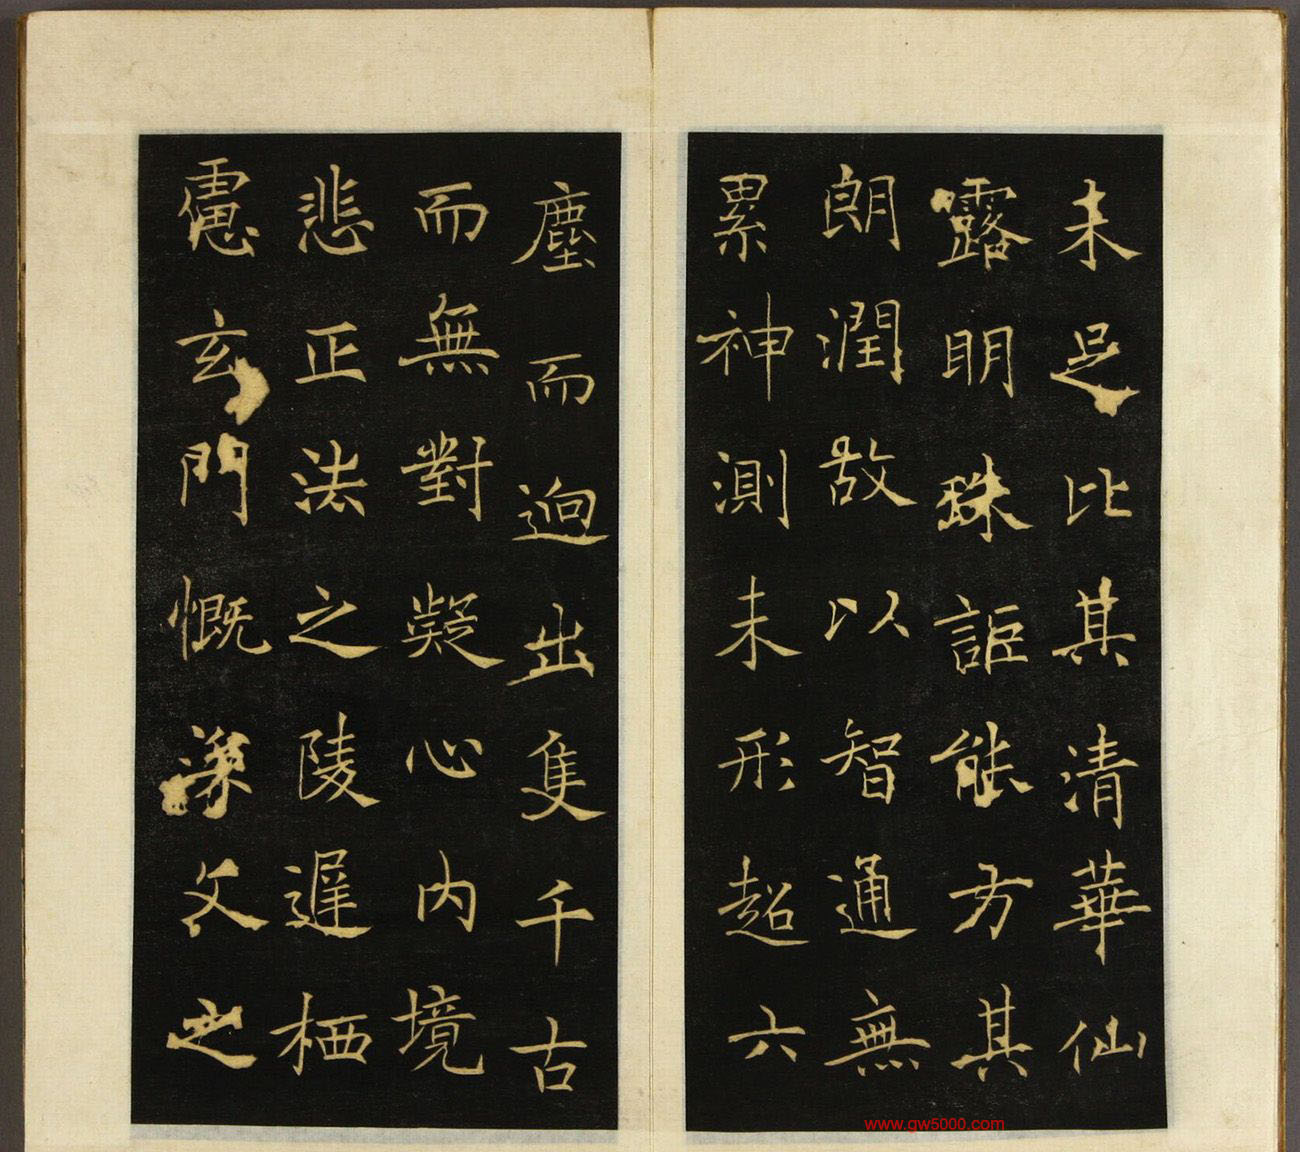 未足比其清華仙
露明珠詎能方其
朗潤故以智通無
累神測未形超六
塵而迥出隻千古
而無對凝心內境
悲正法之陵遲栖
慮玄門慨深文之
www.gw5000.com